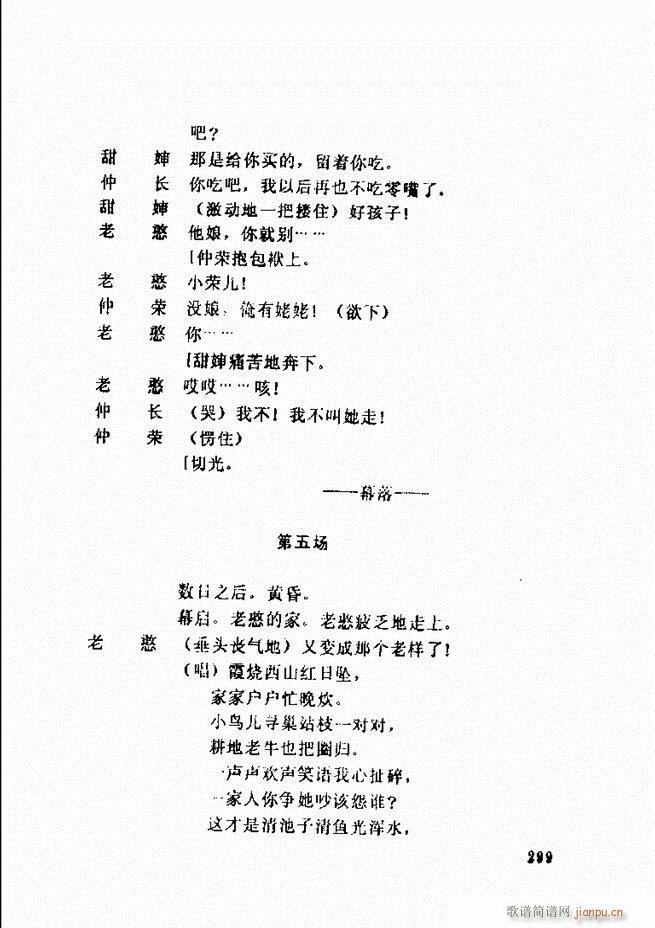 吧？
甜　婶　那是给你买的，留着你吃。
仲　长　你吃吧，我以后再也不吃零嘴了。
甜　婶　（激动地一把搂住）好孩子！
老　憨　他娘，你就别……
〔仲荣抱包袱上。
老　憨　小荣儿！
仲　荣　没娘，俺有姥姥！（欲下）
老　憨　你……
〔甜婶痛苦地奔下。
老　憨　哎哎……咳！
仲　长　（哭）我不！我不叫她走！
仲　荣　（愣住）
〔切光。
——幕落——
第五场
数日之后。黄昏。
幕启。老憨的家。老憨疲乏地走上。
老　憨　（垂头丧气地）又变成那个老样了！
（唱）霞烧西山红日坠，
家家户户忙晚炊。
小鸟儿寻巢站枝一对对，
耕地老牛也把圈归。
一声声欢声笑语我心扯碎，
一家人你争她吵该怨谁？
这才是清池子清鱼光浑水，
299
歌谱简谱网 jianpu.cn